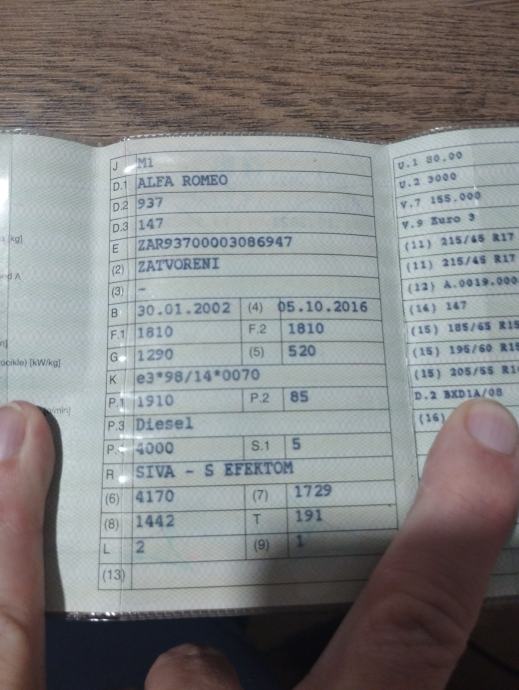 J M1
D.1 ALFA ROMEO
D.2 937
D.3 147
E ZAR93700003086947
(2) ZATVORENI
(3) -
B 30.01.2002 (4) 05.10.2016
F.1 1810 F.2 1810
G 1290 (5) 520
K e3*98/14*0070
P.1 1910 P.2 85
P.3 Diesel
P. 4000 S.1 5
R SIVA - S EFEKTOM
(6) 4170 (7) 1729
(8) 1442 T 191
L 2 (9) 1
(13)
U.1 80.00
U.2 3000
V.7 155.000
V.9 Euro 3
(11) 215/45 R17
(11) 215/45 R17
(12) A.0019.000
(14) 147
(15) 185/65 R15
(15) 195/60 R15
(15) 205/55 R16
D.2 BXD1A/08
(16)
[kg]
nd A
ocikle) [kW/kg]
/min]